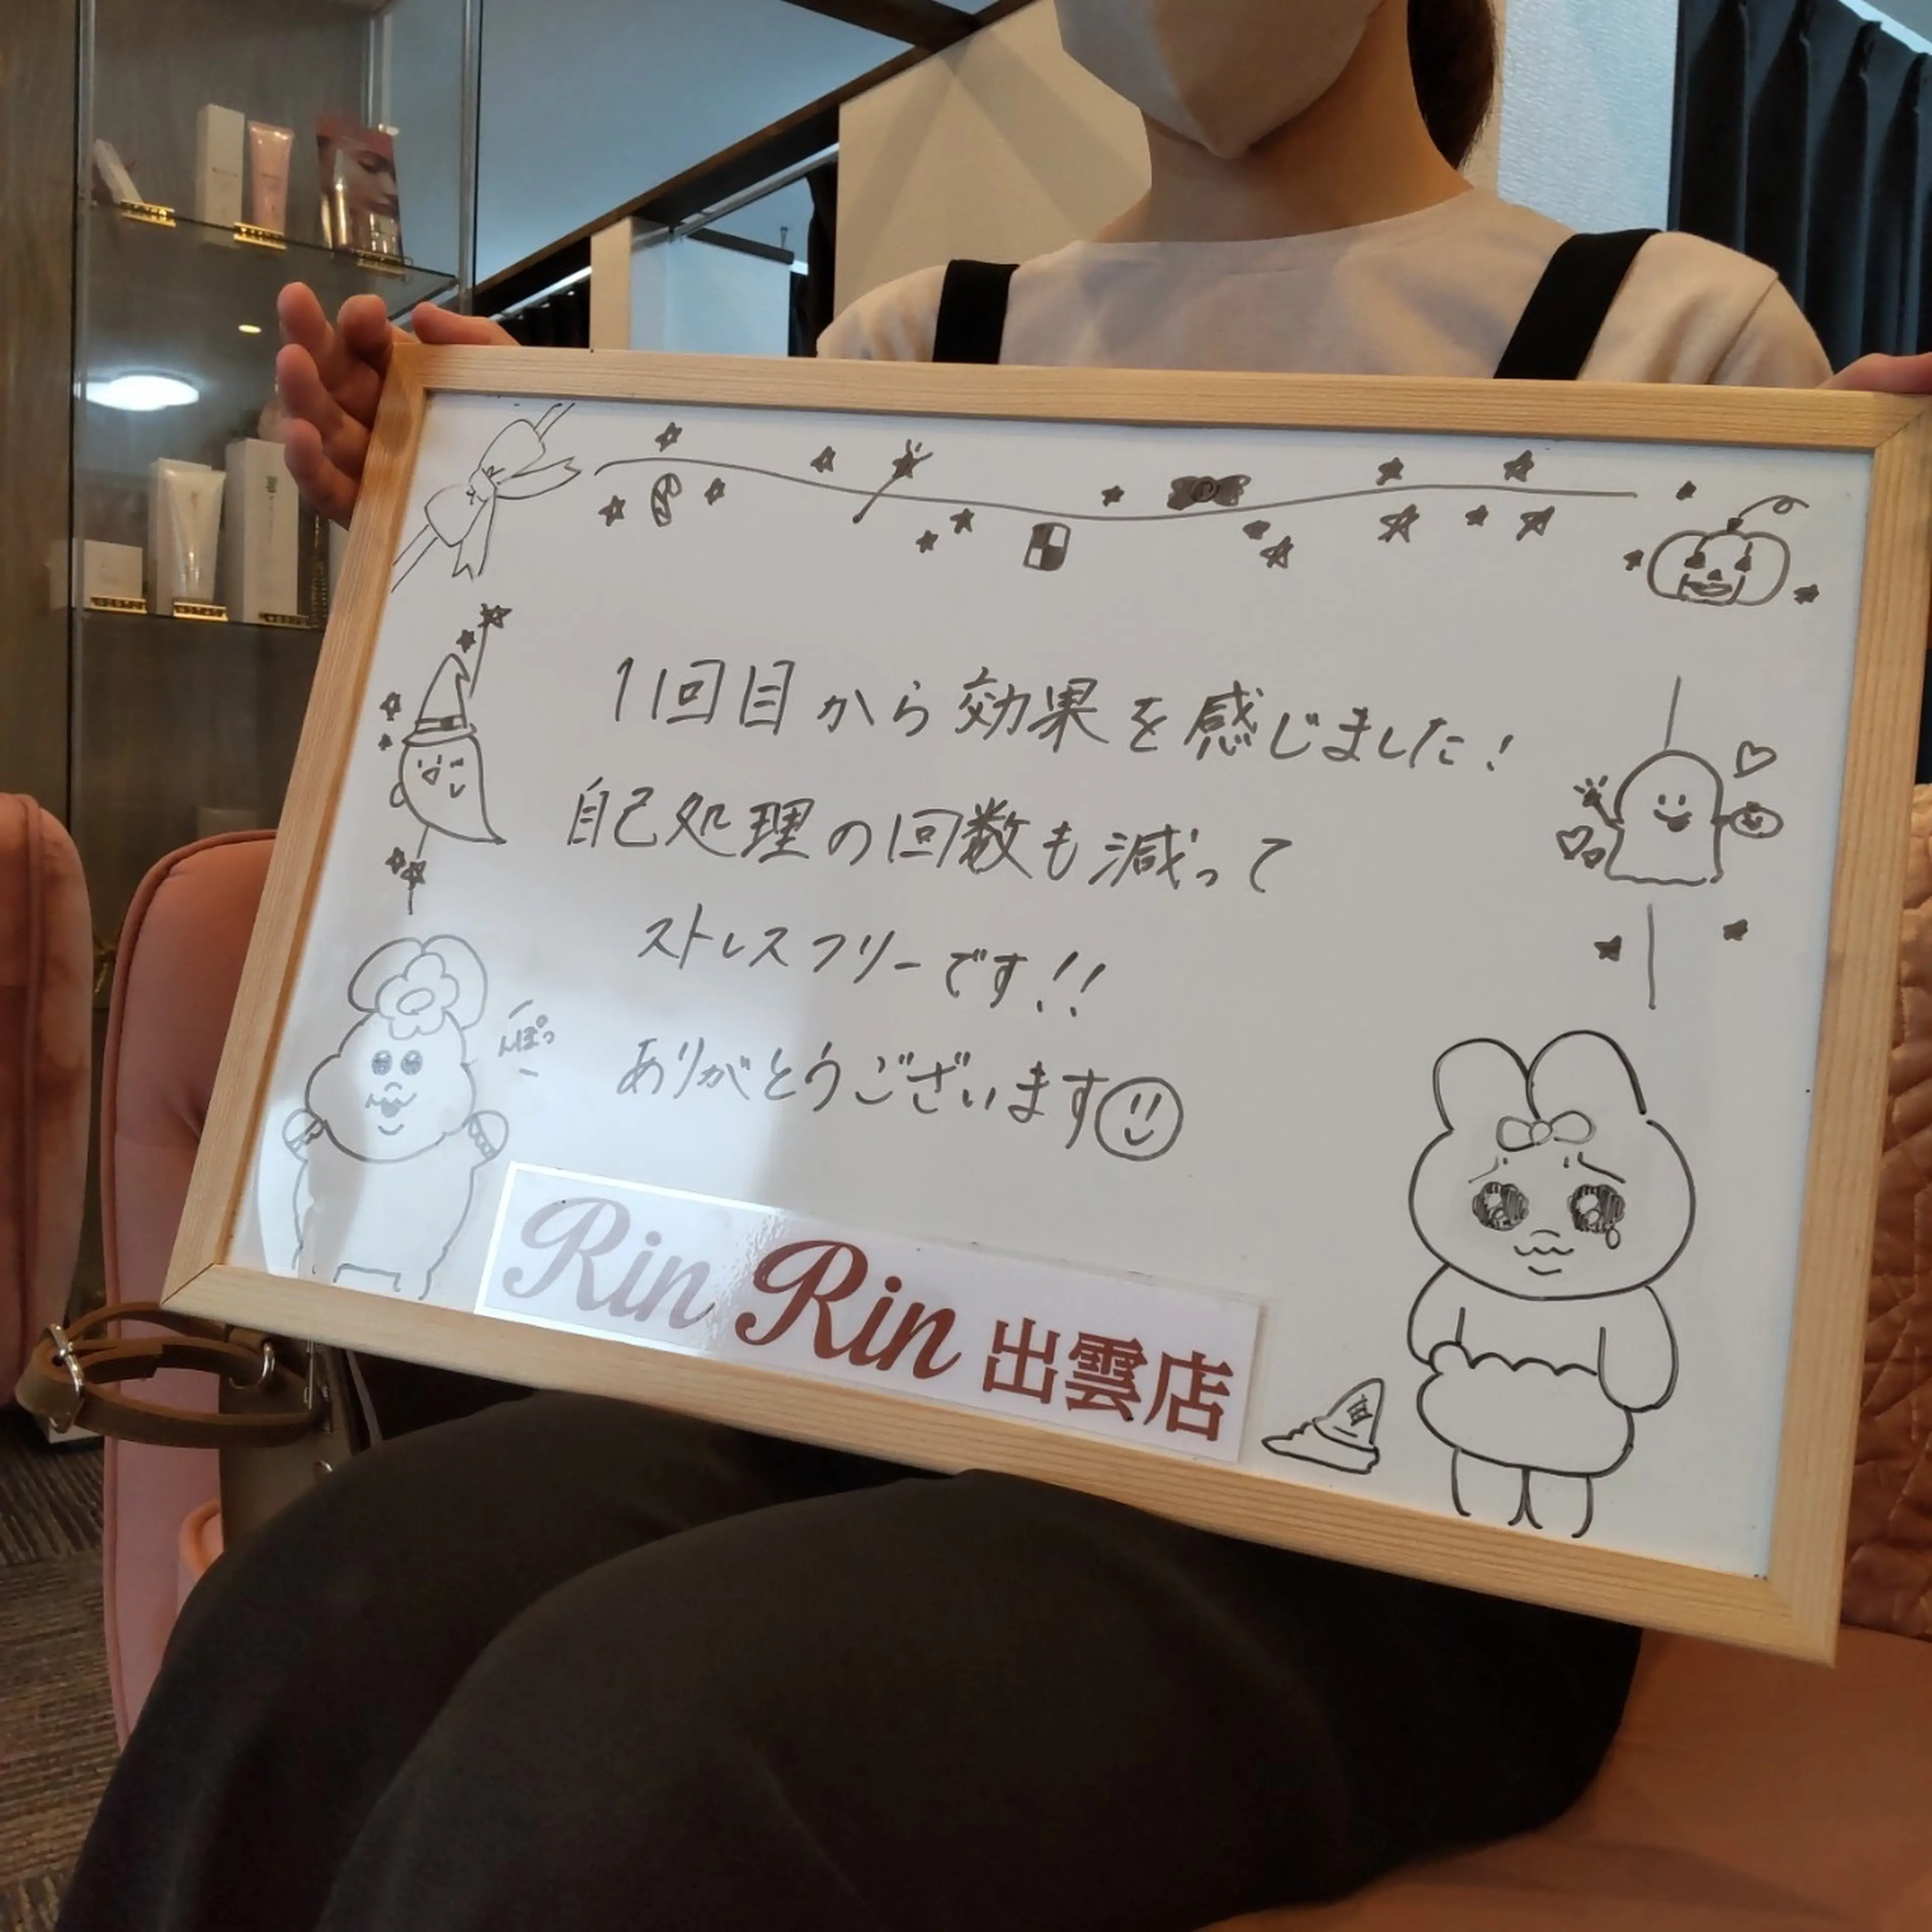 11回目から効果を感じました!
自己処理の回数も減って
ストレスフリーです!!
ありがとうございます
んぽっ
Rin Rin 出雲店